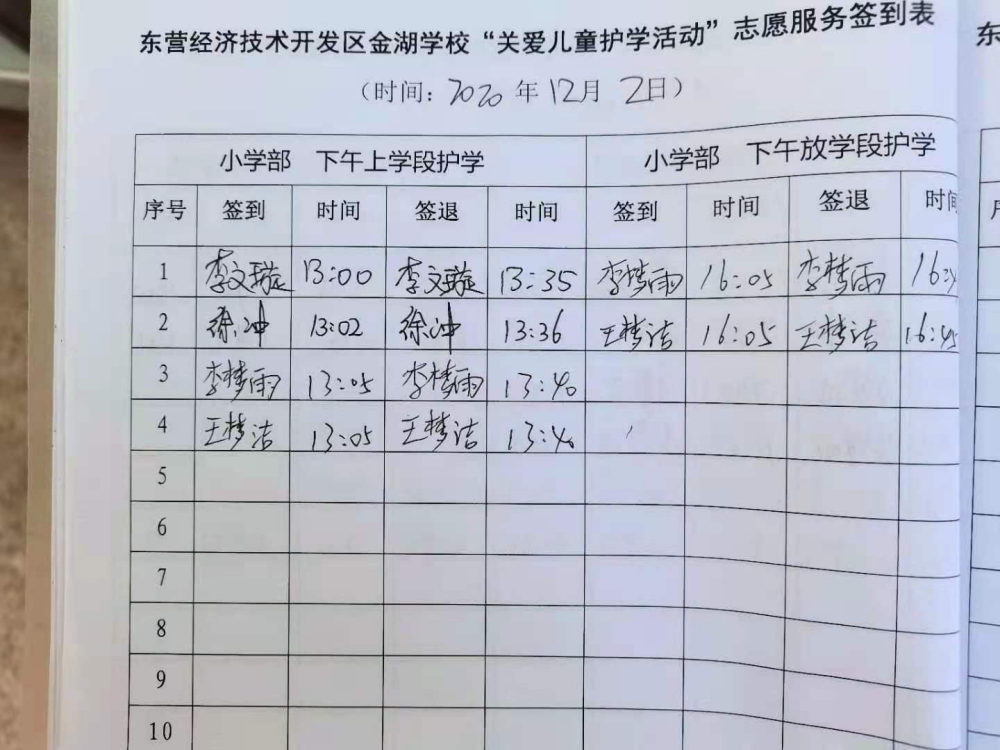 东营经济技术开发区金湖学校“关爱儿童护学活动”志愿服务签到表
（时间：2020年12月2日）
小学部 下午上学段护学 小学部 下午放学段护学
序号 签到 时间 签退 时间 签到 时间 签退 时间
1 李文璇 13:00 李文璇 13:35 李梦雨 16:05 李梦雨
2 徐冲 13:02 徐冲 13:36 王梦洁 16:05 王梦洁 16:45
3 李梦雨 13:05 李梦雨 13:40
4 王梦洁 13:05 王梦洁 13:40
5
6
7
8
9
10
东